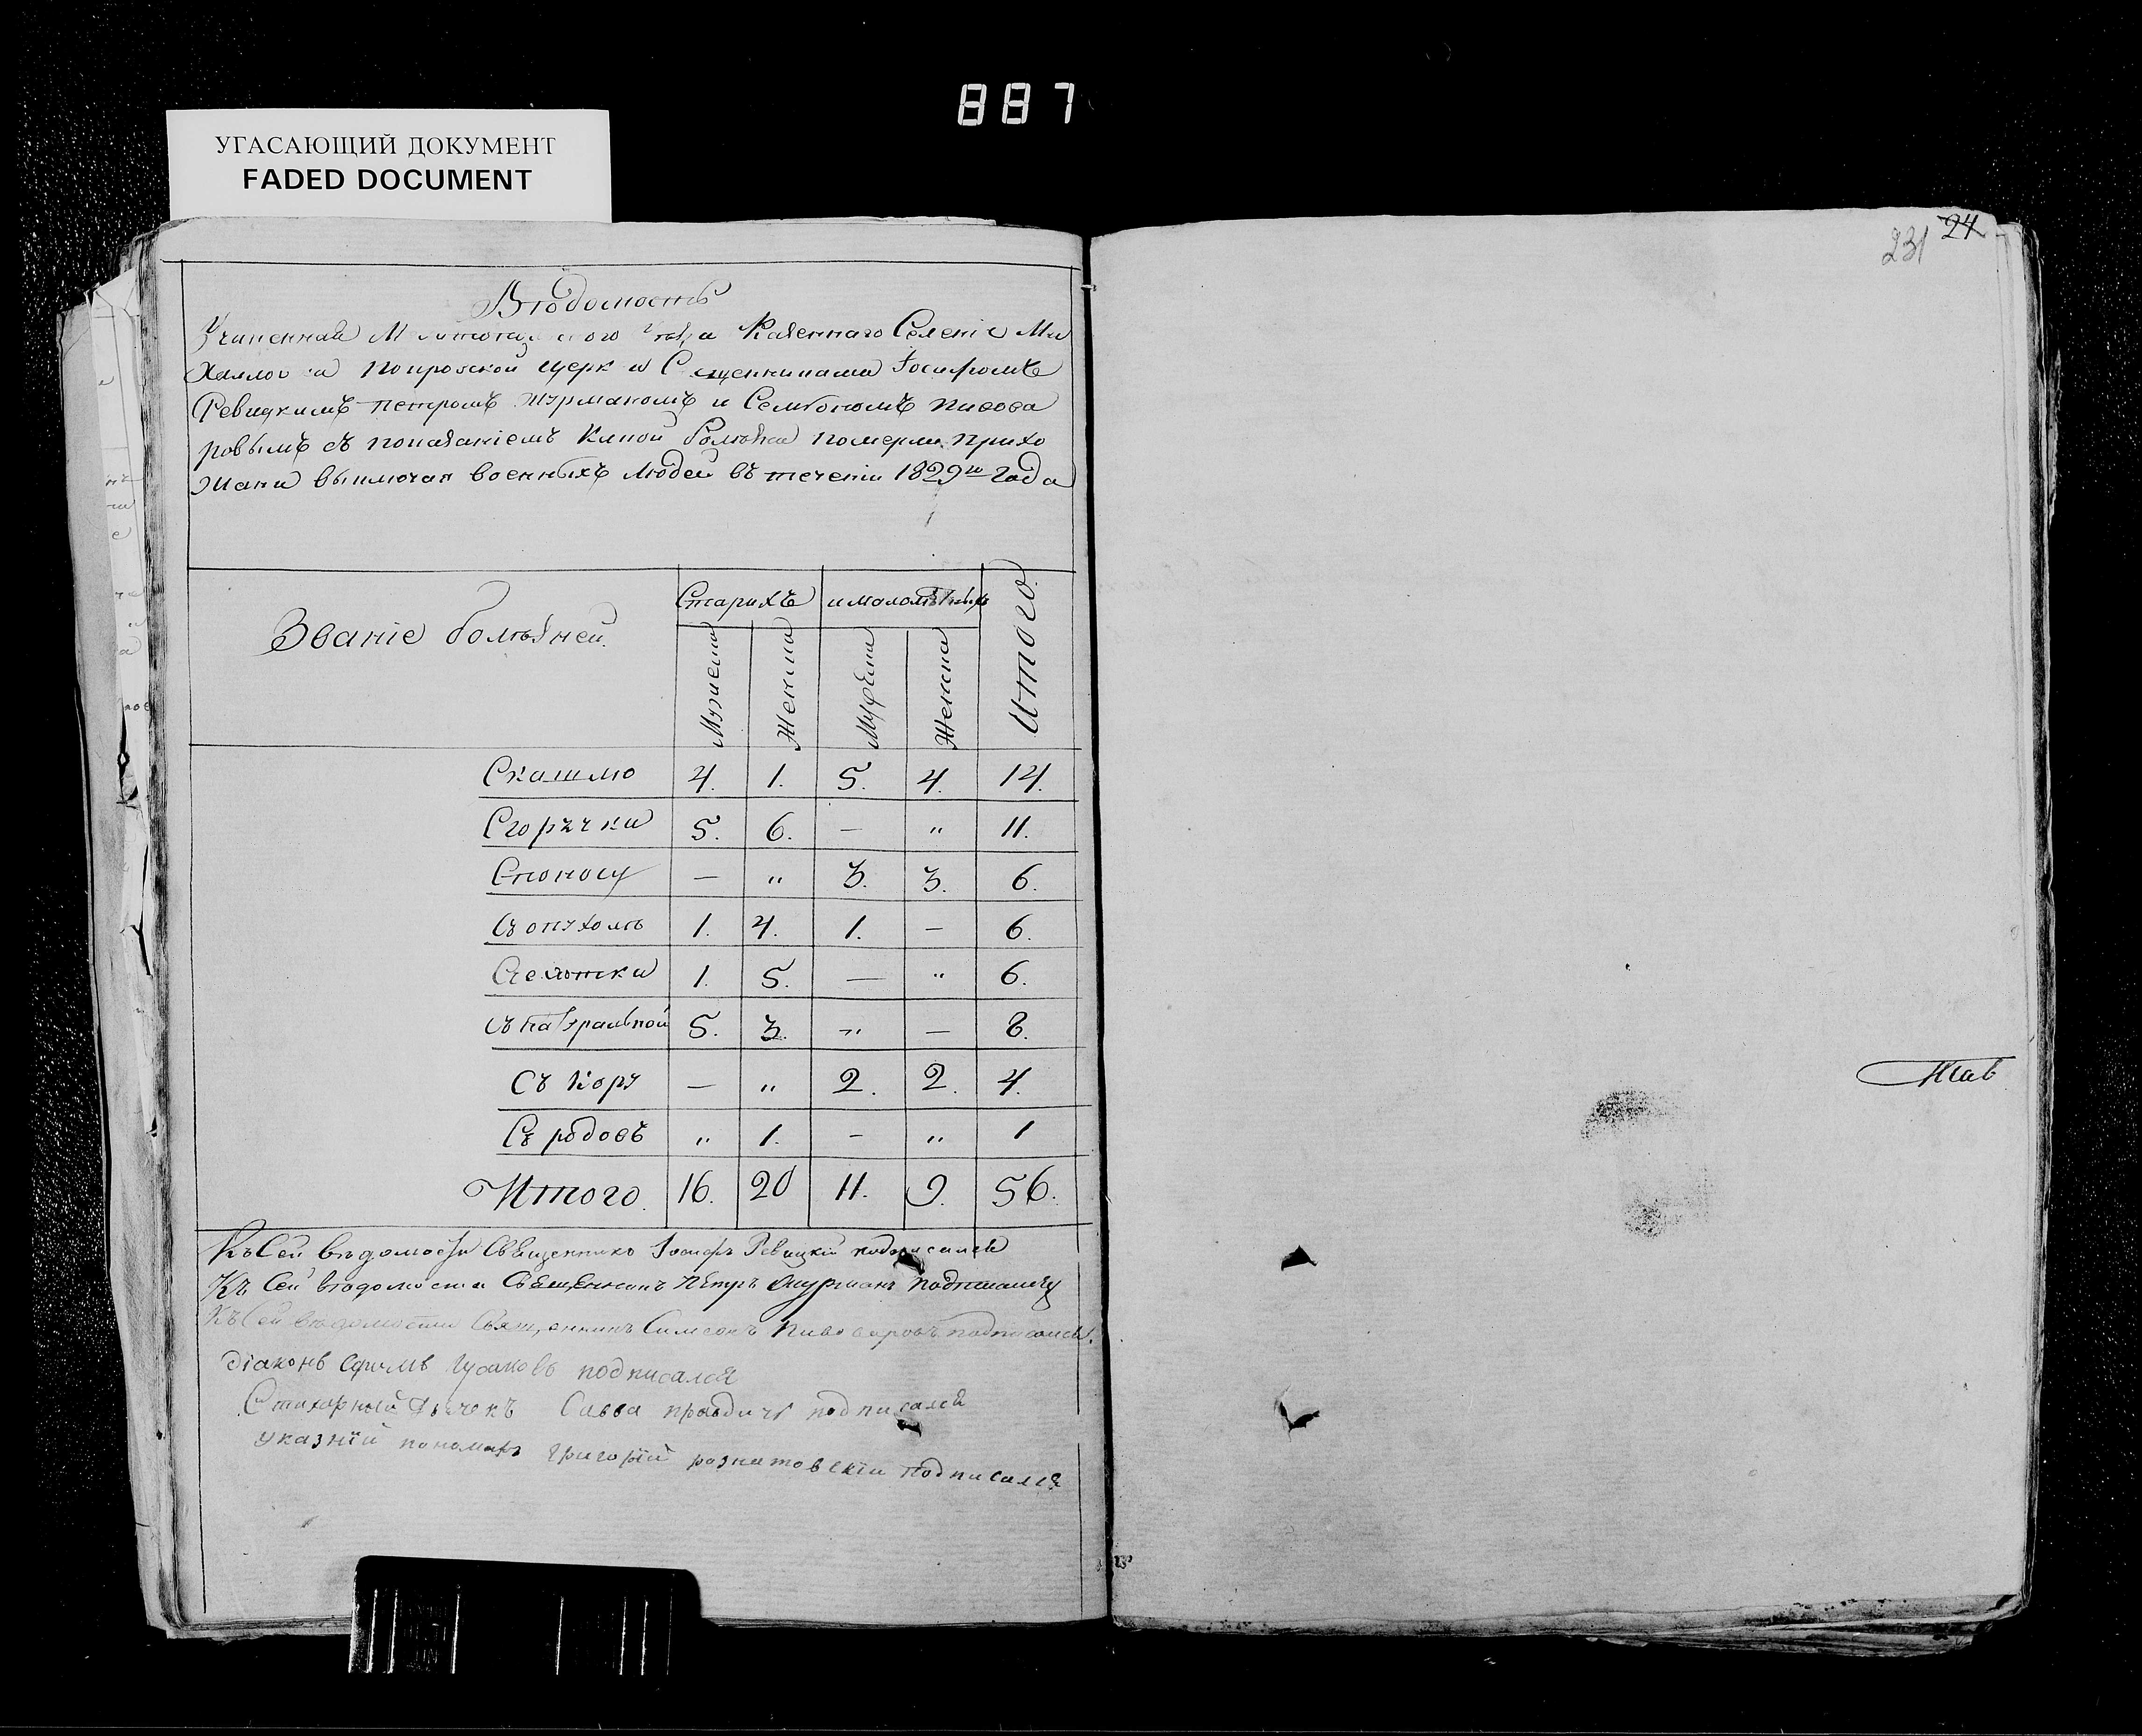 887
УГАСАЮЩИЙ ДОКУМЕНТ
FADED DOCUMENT
231 24
Вѣдомость
Учиненная Казеннаго Селенія Ми
Покровской Иосифомъ
Ревицкимъ Петромъ Журманомъ и Семіономъ Пивова
ровымъ съ показаніемъ Какой болѣзни померли прихо
жани выключая военныхъ людей въ теченіи 1829го Года
Званіе болѣзней. Старихъ и малолѣтныхъ Итого.
Мужеска Женска Мужеска Женска
Скашлю 4. 1. 5. 4. 14.
Сгорячки 5. 6. — " 11.
Споносу — " 3. 3. 6.
Съ опухоли 1. 4. 1. — 6.
1. 5. — " 6.
Съ натуральной 5. 3. " — 8.
Съ кору — " 2. 2. 4.
Съ родовъ " 1. — " 1
Итого. 16. 20 11. 9. 56.
Къ Сей вѣдомости Священникъ Іосифъ Ревицкій подписался
Къ Сей вѣдомости Священникъ Петръ Журманъ подписался
Къ Сей вѣдомости Священникъ Симеонъ Пивоваровъ подписался.
Діаконъ Ефимъ Гусаковъ подписался
Стихарный Дьячекъ Савва подписался
Указній пономарь Григорій розматовскій подписался